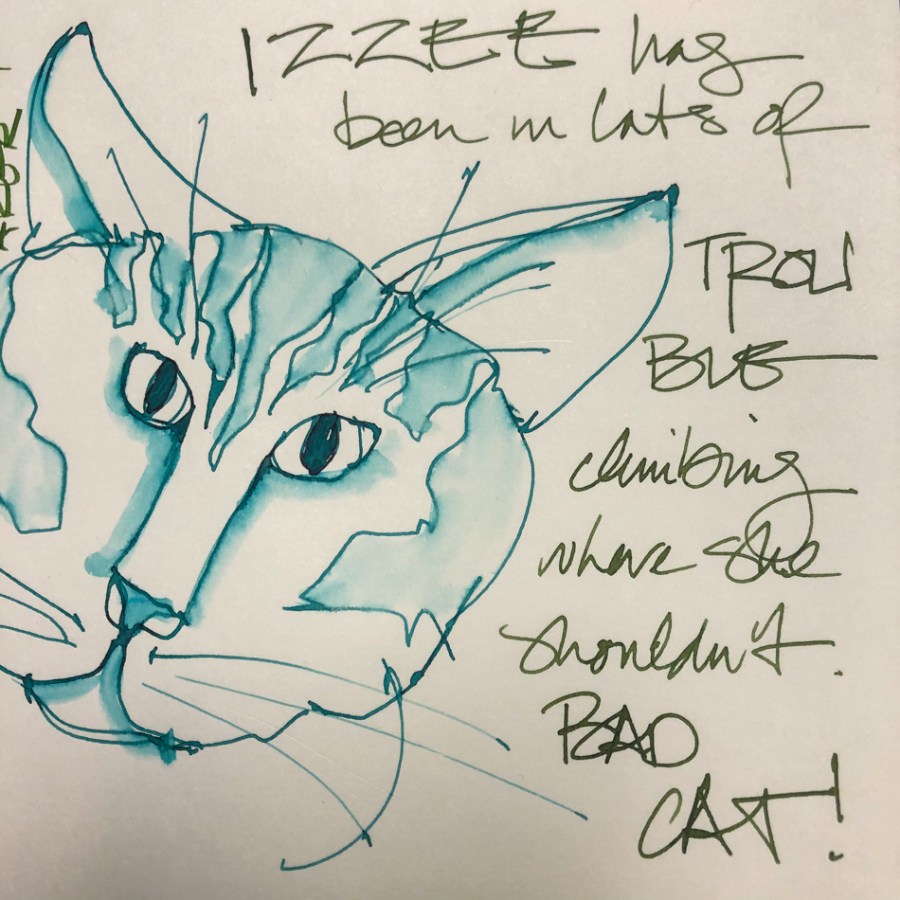 IZZEE has
been in lots of
TROU
BLE
climbing
where she
shouldn't.
BAD
CAT!